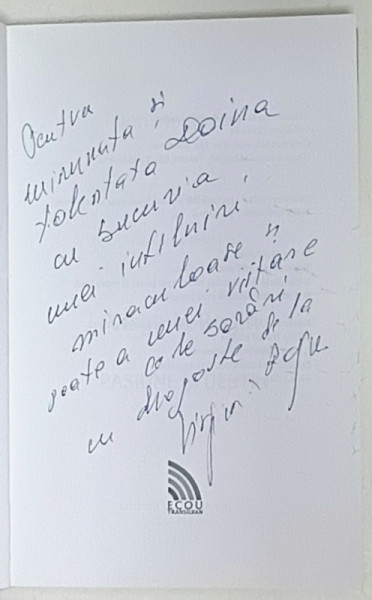 Pentru
minunata și
talentata Doina
cu bucuria
unei întîlniri
miraculoase și
poate a unei viitoare
cu dragoste de la
ECOU
TRANSILVAN